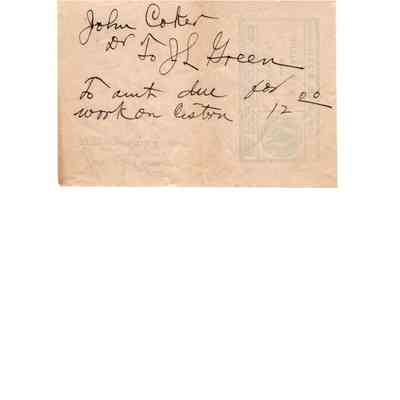 John Coker
Dr To J L Green
To amt due for
work on cistern 12 00